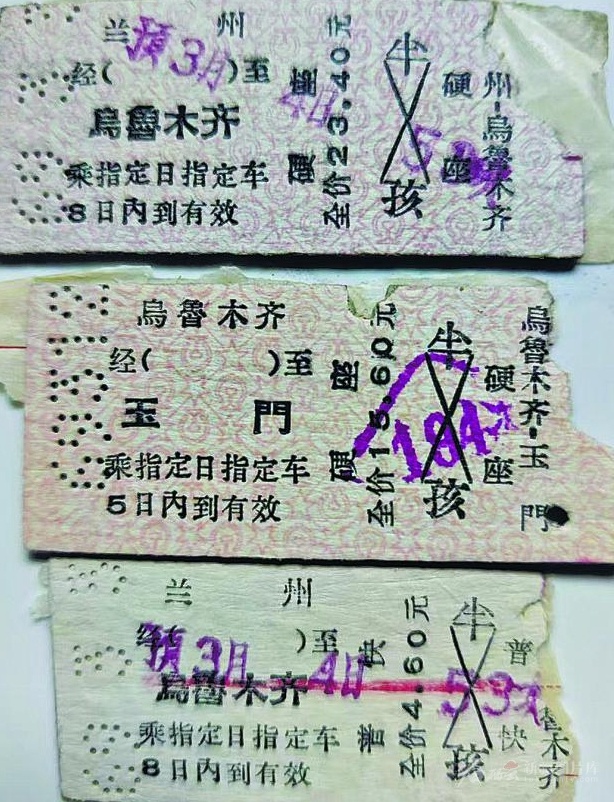 兰 州
预 3月 4日
经( )至
烏魯木齐
乘指定日指定车
8日内到有效
硬座
全价23.40元
半
孩
硬座
州-烏魯木齐
烏魯木齐
经( )至
玉 門
乘指定日指定车
5日内到有效
硬座
全价15.60元
半
孩
184次
硬座
烏魯木齐-玉門
兰 州
预 3月 4日
经( )至
烏魯木齐
乘指定日指定车
8日内到有效
普快
全价4.60元
半
孩
53次
普快
魯木齐